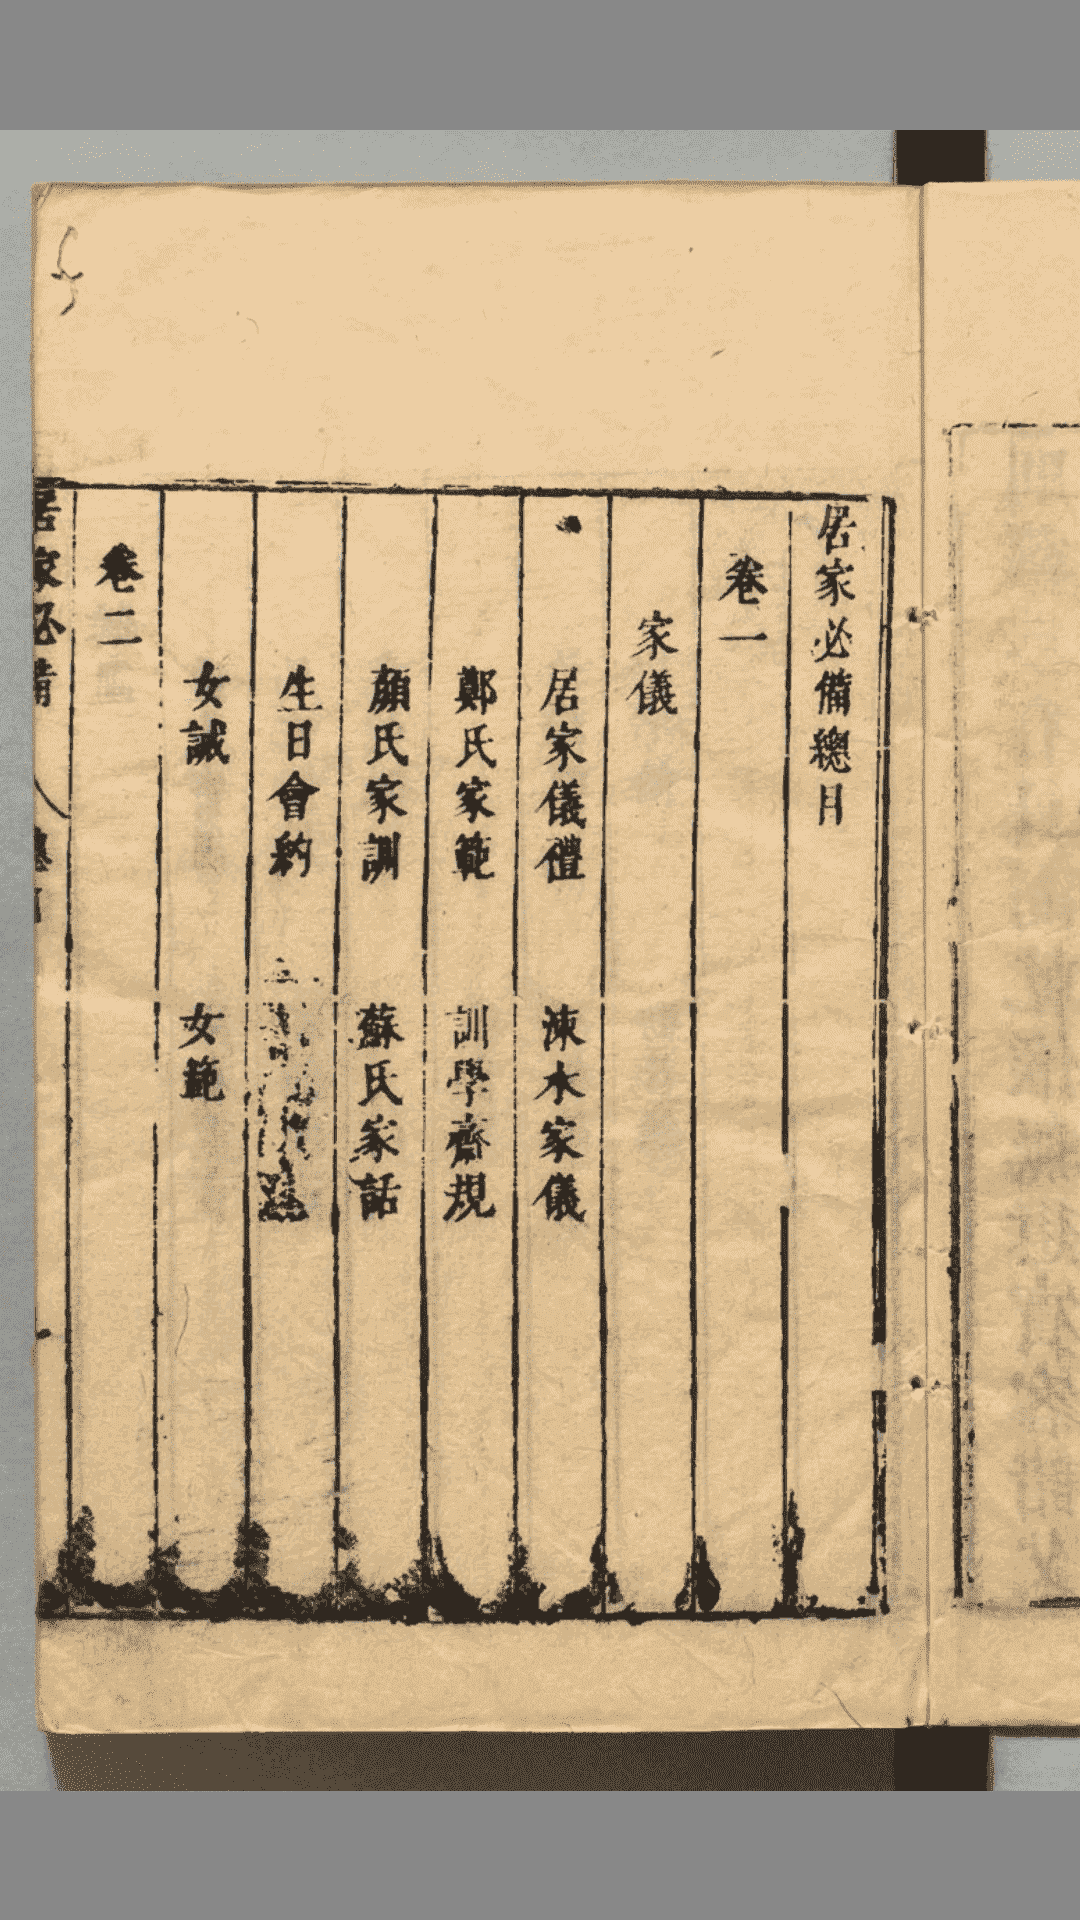 居家必備總目
卷一
家儀
居家儀禮 涑水家儀
鄭氏家範 訓學齋規
顏氏家訓 蘇氏家話
生日會約
女誡 女範
卷二
居家必備